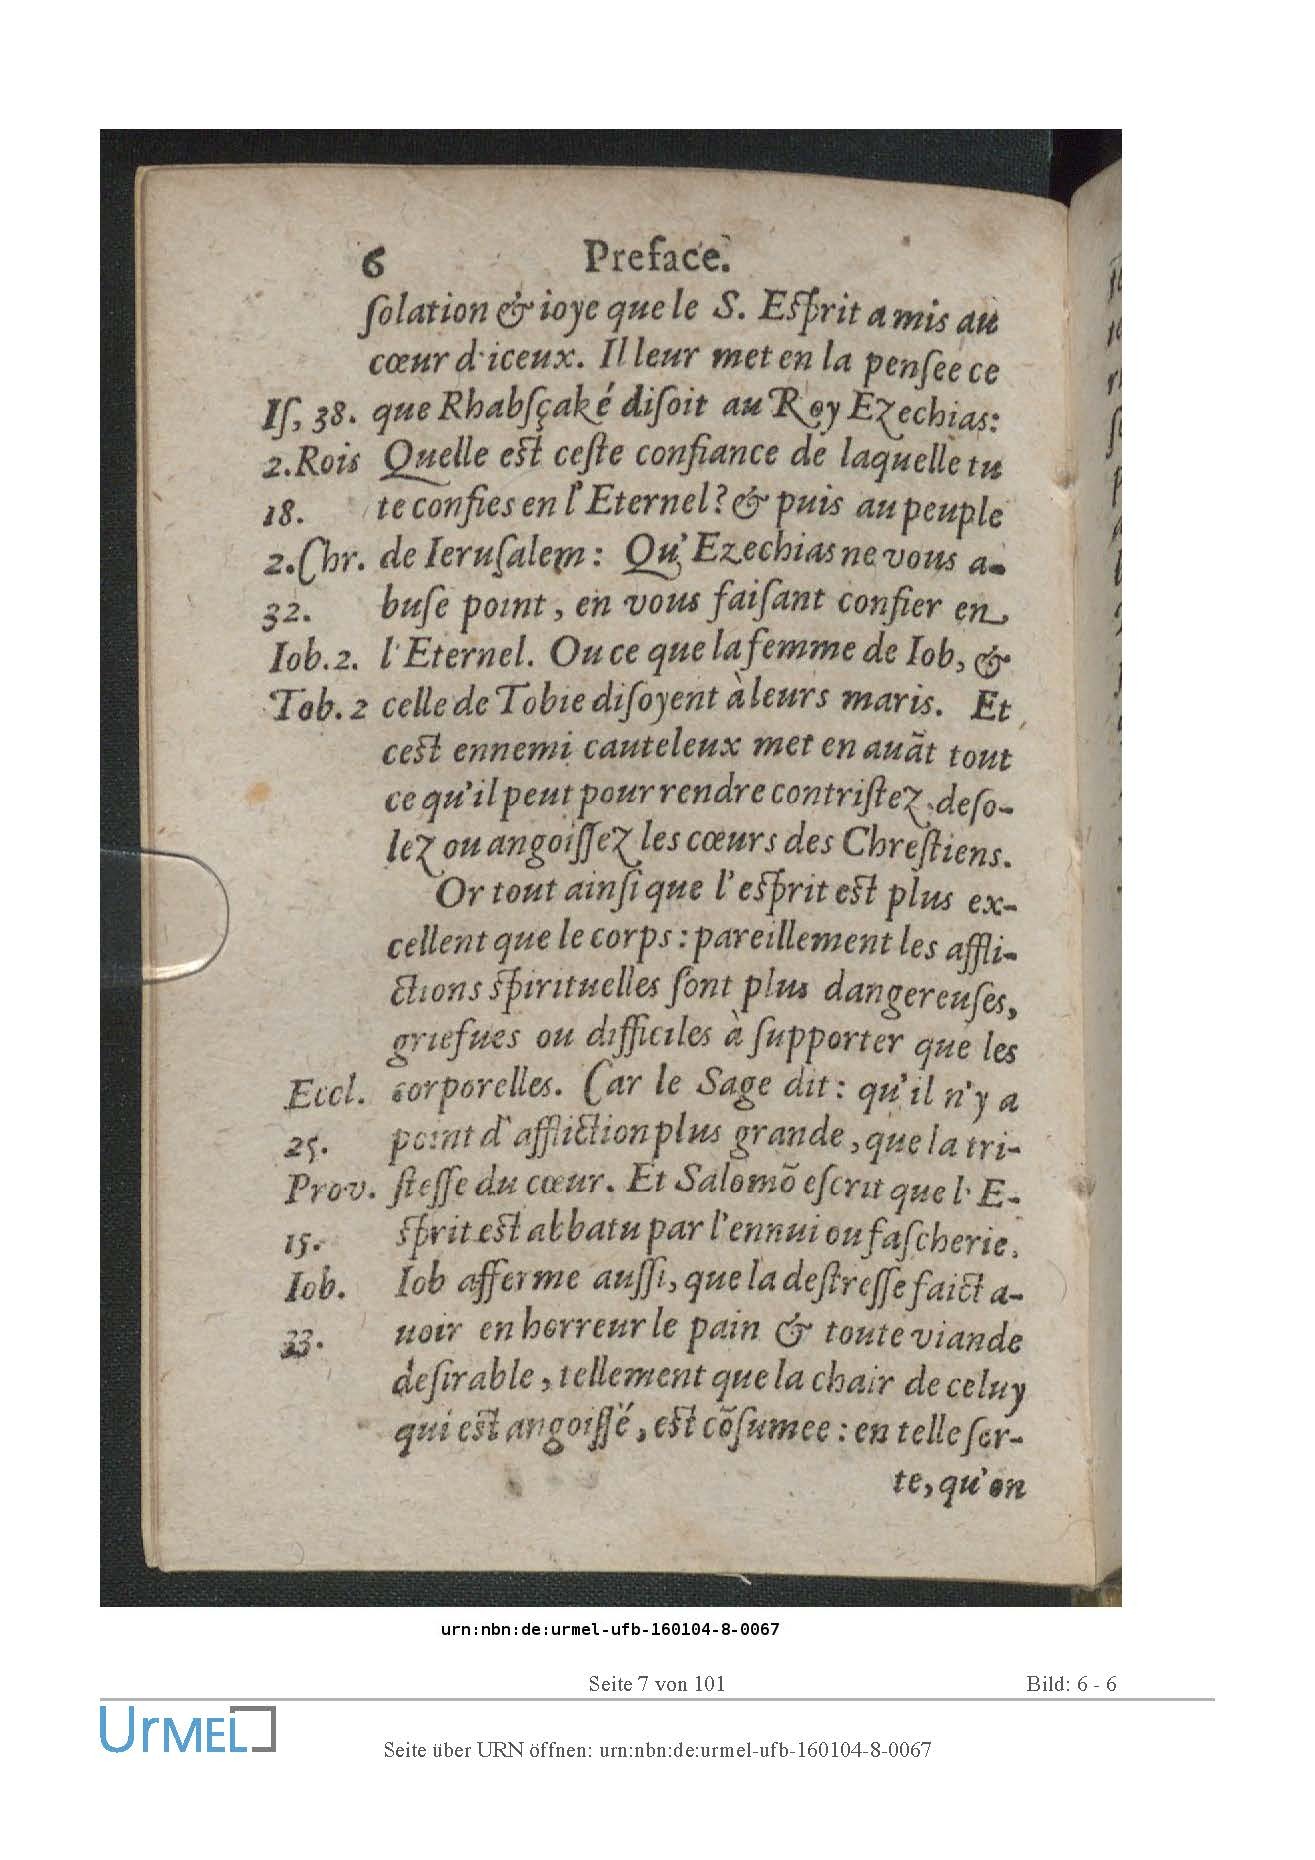 6 Preface.
ſolation & ioye que le S. Eſprit a mis au
cœur d'iceux. Il leur met en la penſee ce
Iſ, 38. que Rhabſçaké diſoit au Roy Ezechias:
2.Rois Quelle eſt ceſte confiance de laquelle tu
18. te confies en l'Eternel? & puis au peuple
2.Chr. de Ieruſalem: Qu'Ezechias ne vous a-
32. buſe point, en vous faiſant confier en
Iob.2. l'Eternel. Ou ce que la femme de Iob, &
Tob.2 celle de Tobie diſoyent à leurs maris. Et
ceſt ennemi cauteleux met en auãt tout
ce qu'il peut pour rendre contriſtez, deſo-
lez ou angoiſſez les cœurs des Chreſtiens.
Or tout ainſi que l'eſprit eſt plus ex-
cellent que le corps: pareillement les affli-
ctions ſpirituelles ſont plus dangereuſes,
griefues ou difficiles à ſupporter que les
Eccl. corporelles. Car le Sage dit: qu'il n'y a
25. point d'affliction plus grande, que la tri-
Prov. ſteſſe du cœur. Et Salomõ eſcrit que l'E-
15. ſprit eſt abbatu par l'ennui ou faſcherie.
Iob. Iob afferme auſſi, que la deſtreſſe faict a-
33. uoir en horreur le pain & toute viande
deſirable, tellement que la chair de celuy
qui eſt angoiſſé, eſt cõſumee: en telle ſor-
te, qu'on
urn:nbn:de:urmel-ufb-160104-8-0067
Seite 7 von 101 Bild: 6 - 6
UrMEL
Seite über URN öffnen: urn:nbn:de:urmel-ufb-160104-8-0067